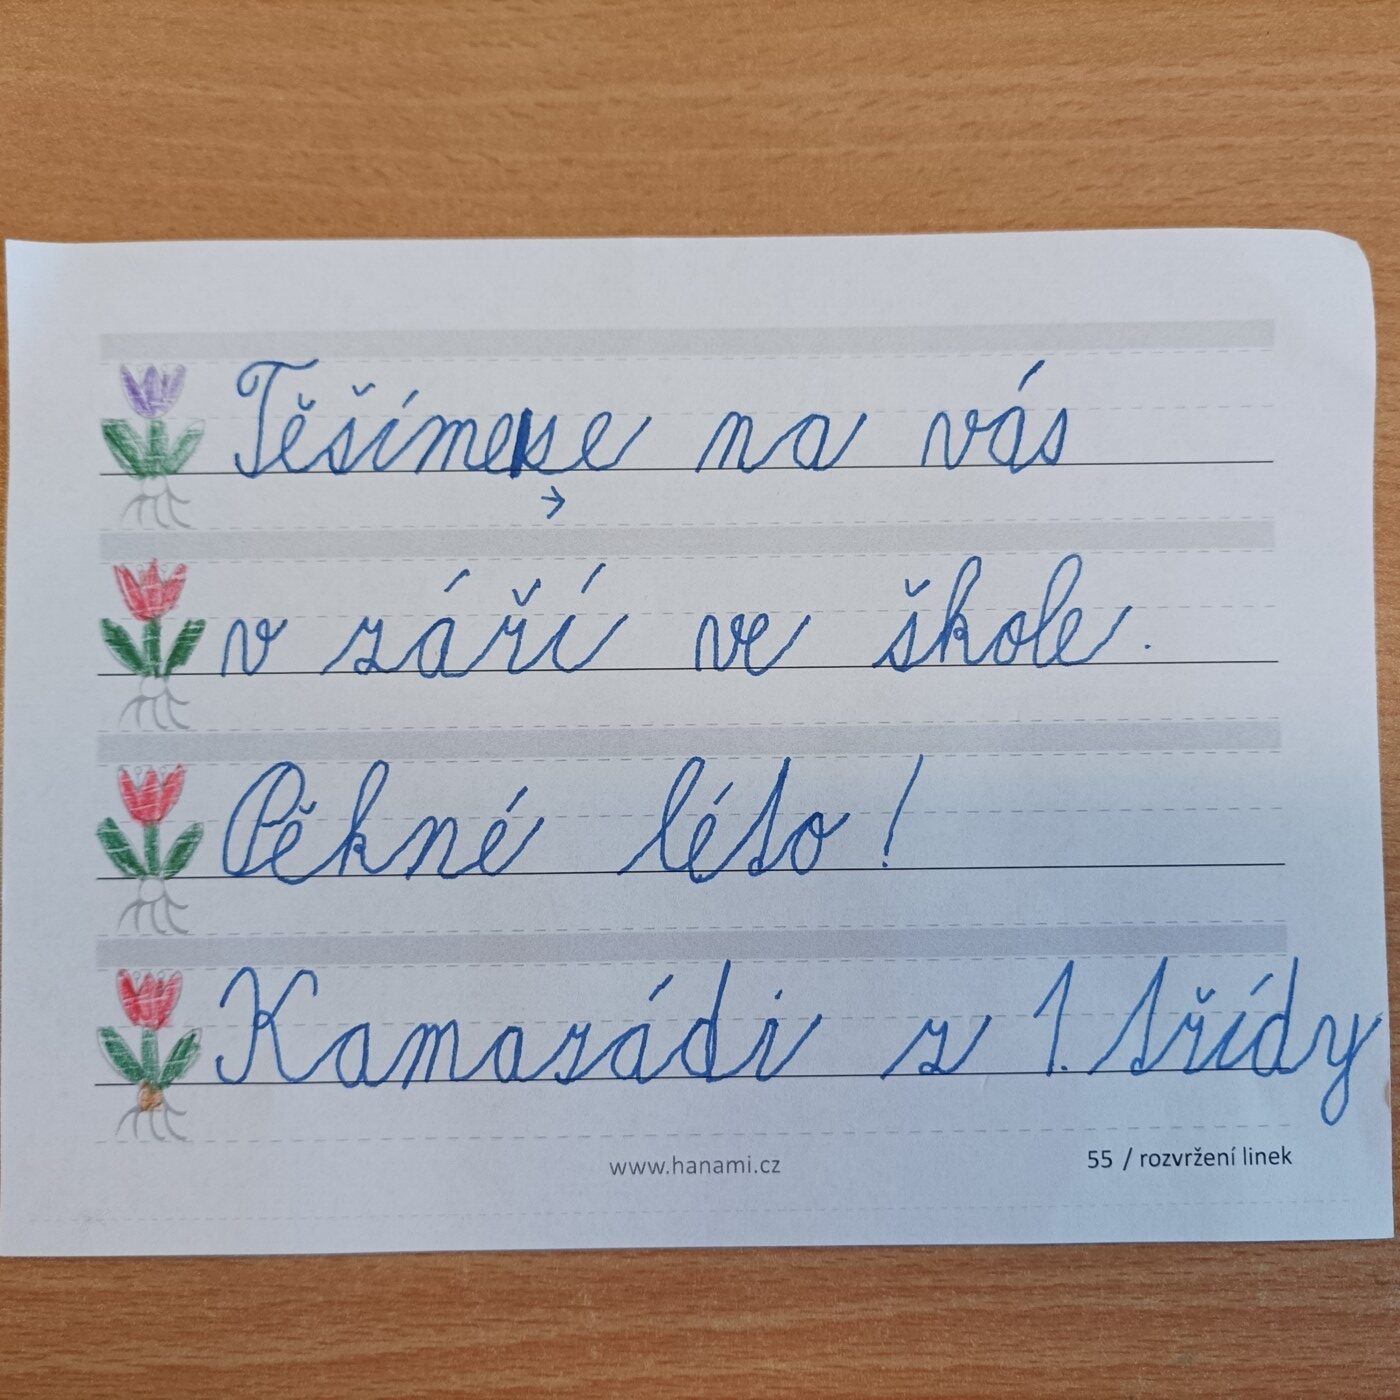 Těšíme se na vás
→
v září ve škole.
Pěkné léto!
Kamarádi z 1. třídy
www.hanami.cz
55 / rozvržení linek